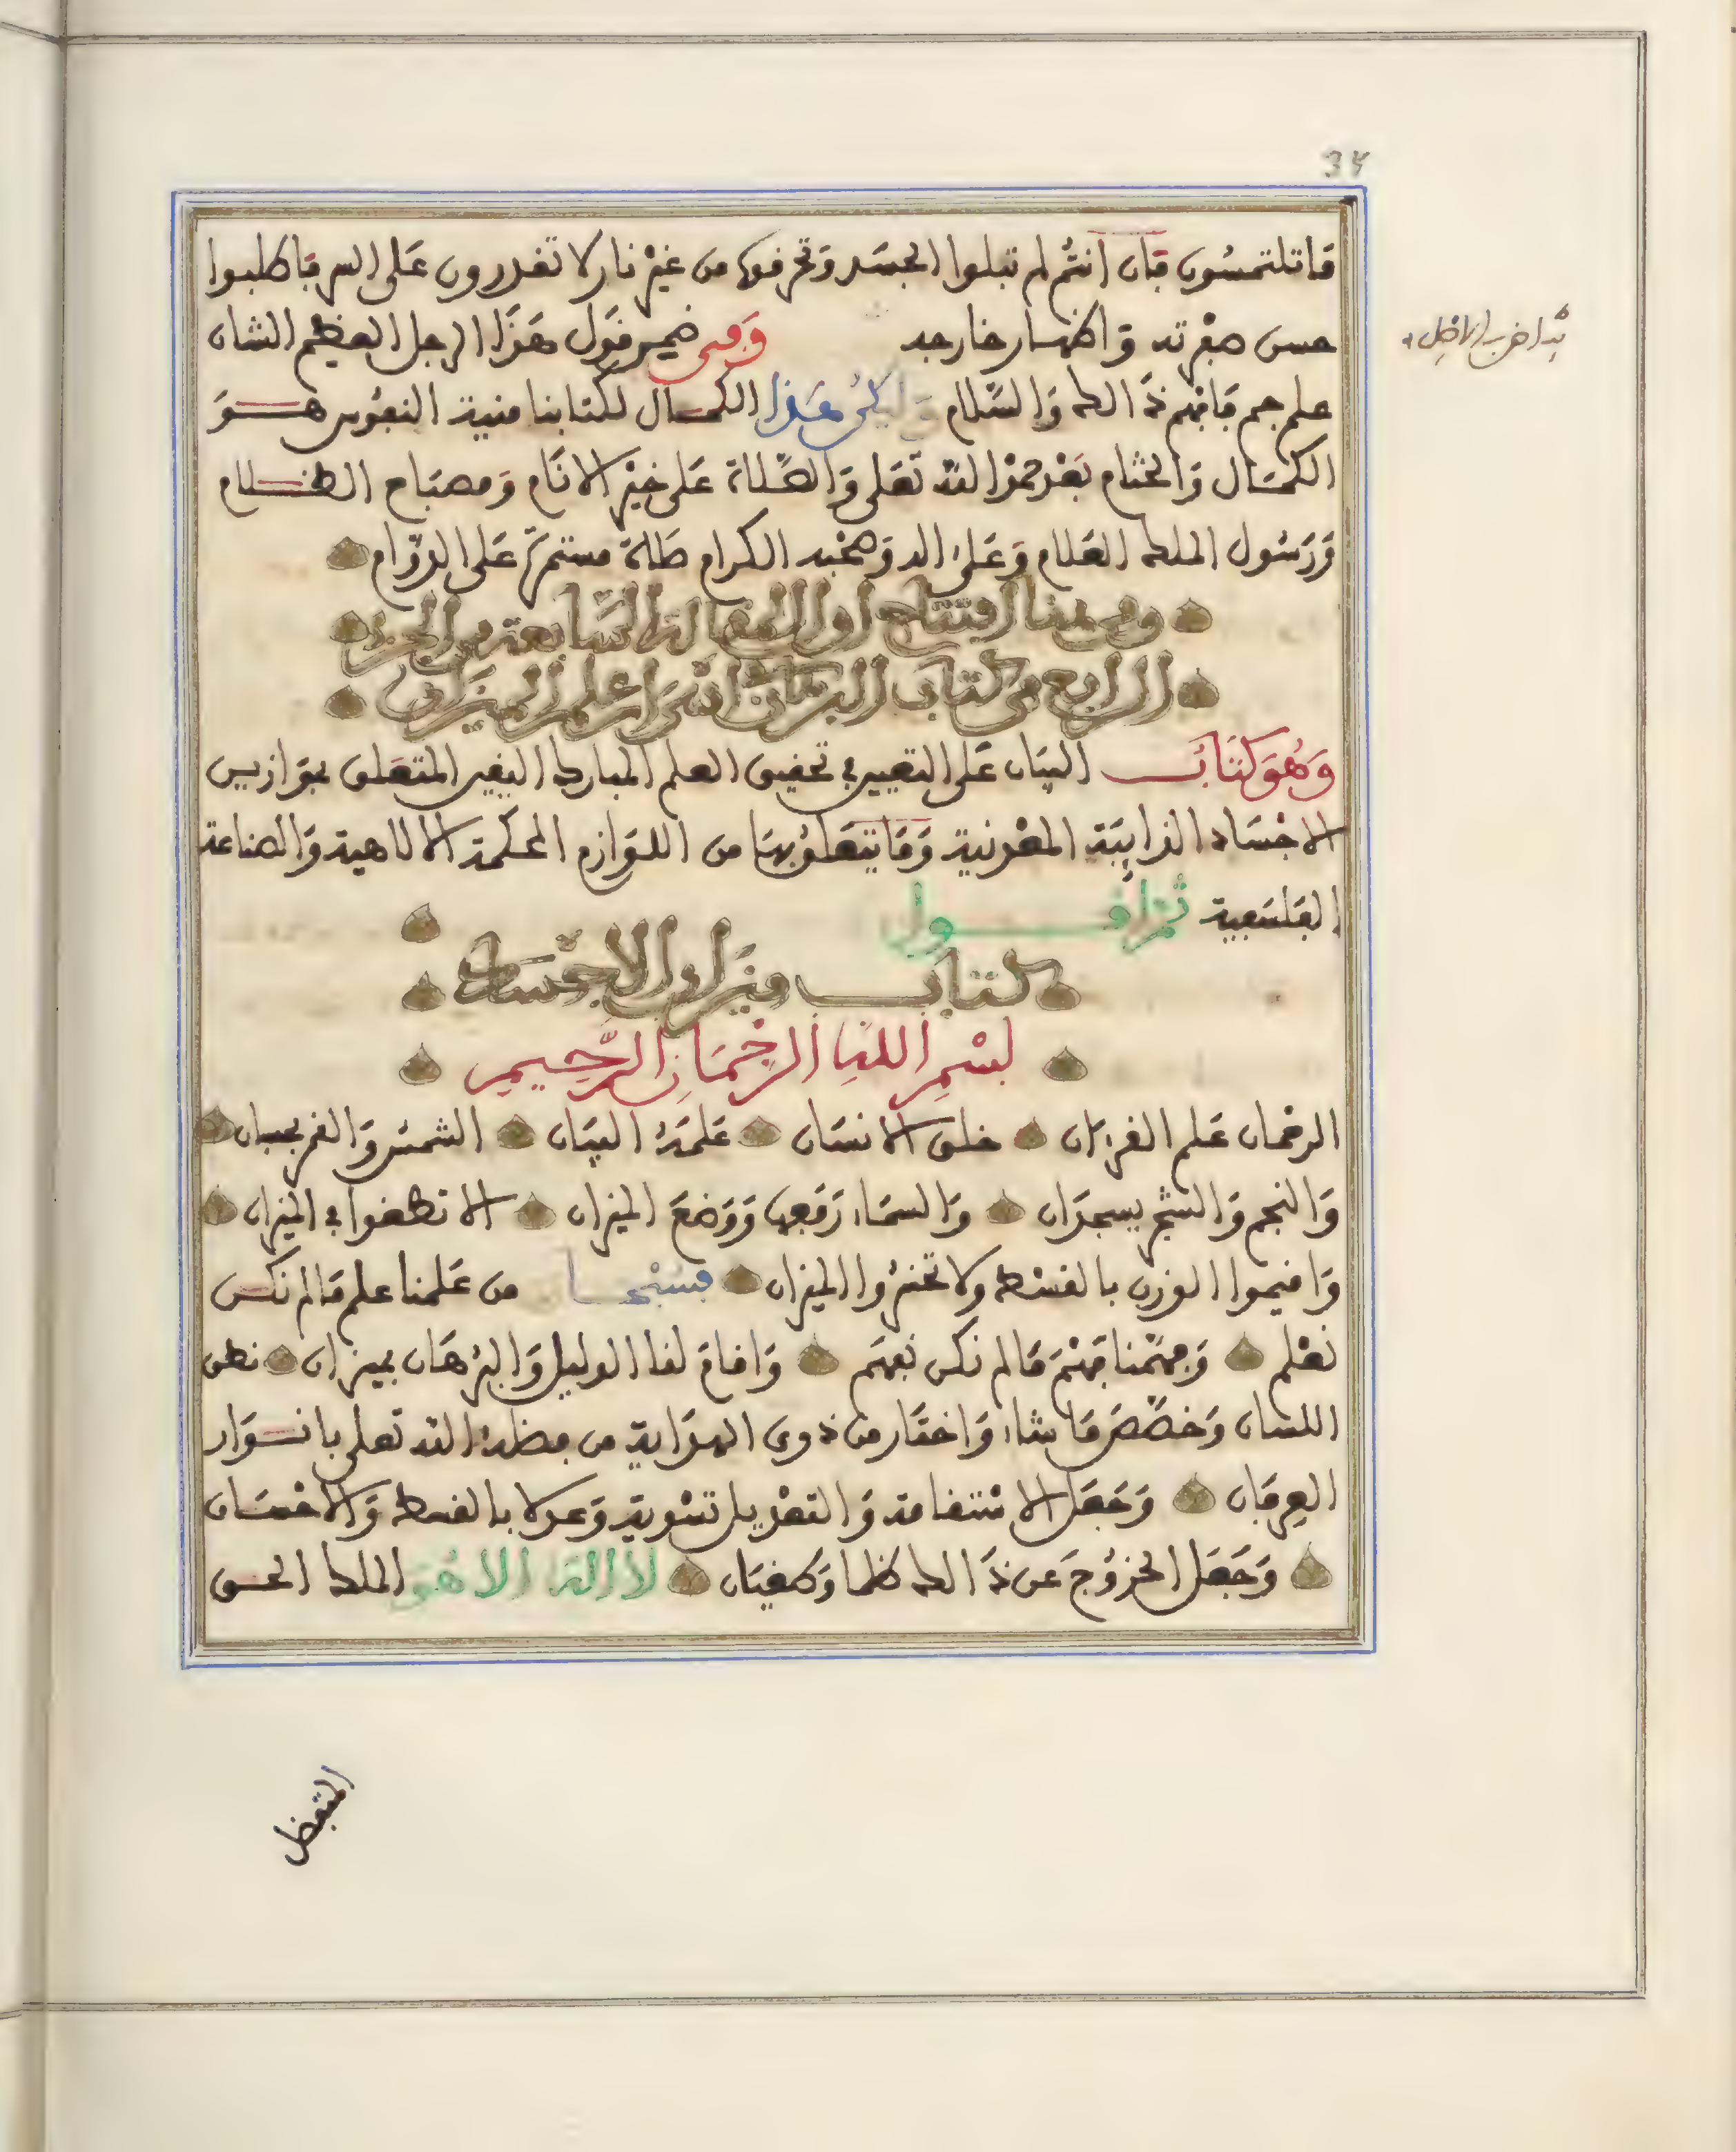 34
ما تلتمسون فان أنتم لم تبلوا الجسد وتحرقوه من غير نار لا تقدرون على السر فاطلبوا
حسن صفرته واظهار خارجه وفى ضمير قول هذا الرجل العظيم الشان
علم جم فافهم ذالك والسلام وليكن هذا الكمال لكتابنا منية النفوس هو
الكمال والختام بعد حمد الله تعلى والصلاة على خير الانام ومصباح الظلام
ورسول الملك العلام وعلى اله وصحبه الكرام صلاة مستمرة على الدوام
وفى هنا افتتاح اول المقالة السابعة من الجزء
الرابع من كتاب البرهان اسرار علم الميزان
وهو كتاب البيان على التعيين في تحقيق العلم المبارك اليقين المتعلق بموازين
الاجساد الذايبة المعدنية وما يتعلق بها من اللوازم الحكمة الالاهية والصناعة
الفلسفية ثم اقول
كتاب ميزان الاجساد
بسم الله الرحمان الرحيم
الرحمان علم القرءان خلق الانسان علمه البيان الشمس والقمر بحسبان
والنجم والشجر يسجدان والسماء رفعها ووضع الميزان الا تطغوا في الميزان
واقيموا الوزن بالقسط ولا تخسروا الميزان فسبحان من علمنا علم ما لم نكن
نعلم وفهمنا فهم ما لم نكن نفهم واقام لنا الدليل والبرهان بميزان نطق
اللسان وخصص ما يشاء واختار من ذوى الهداية من فضله الله تعلى بانوار
العرفان وجعل الاستقامة والتعديل تسوية وعدلا بالقسط والاحسان
وجعل الخروج عن ذالك ظلما وطغيان لا اله الا هو الملك الحق
المتفضل